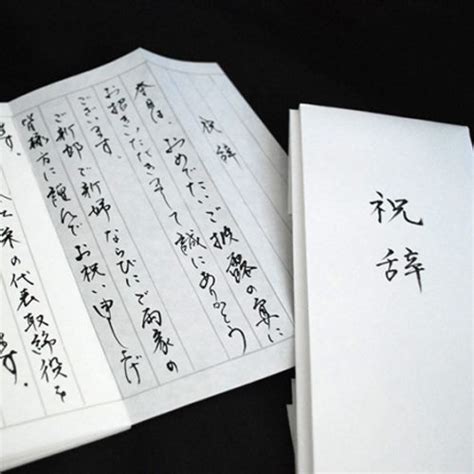 祝辞
本日は、おめでたいご披露の宴に
お招きいただきまして誠にありがとう
ございます。
ご新郎ご新婦ならびにご両家の
皆様方に謹んでお祝い申し上げ
ます。
栄の代表取締役を
ます。
祝辞